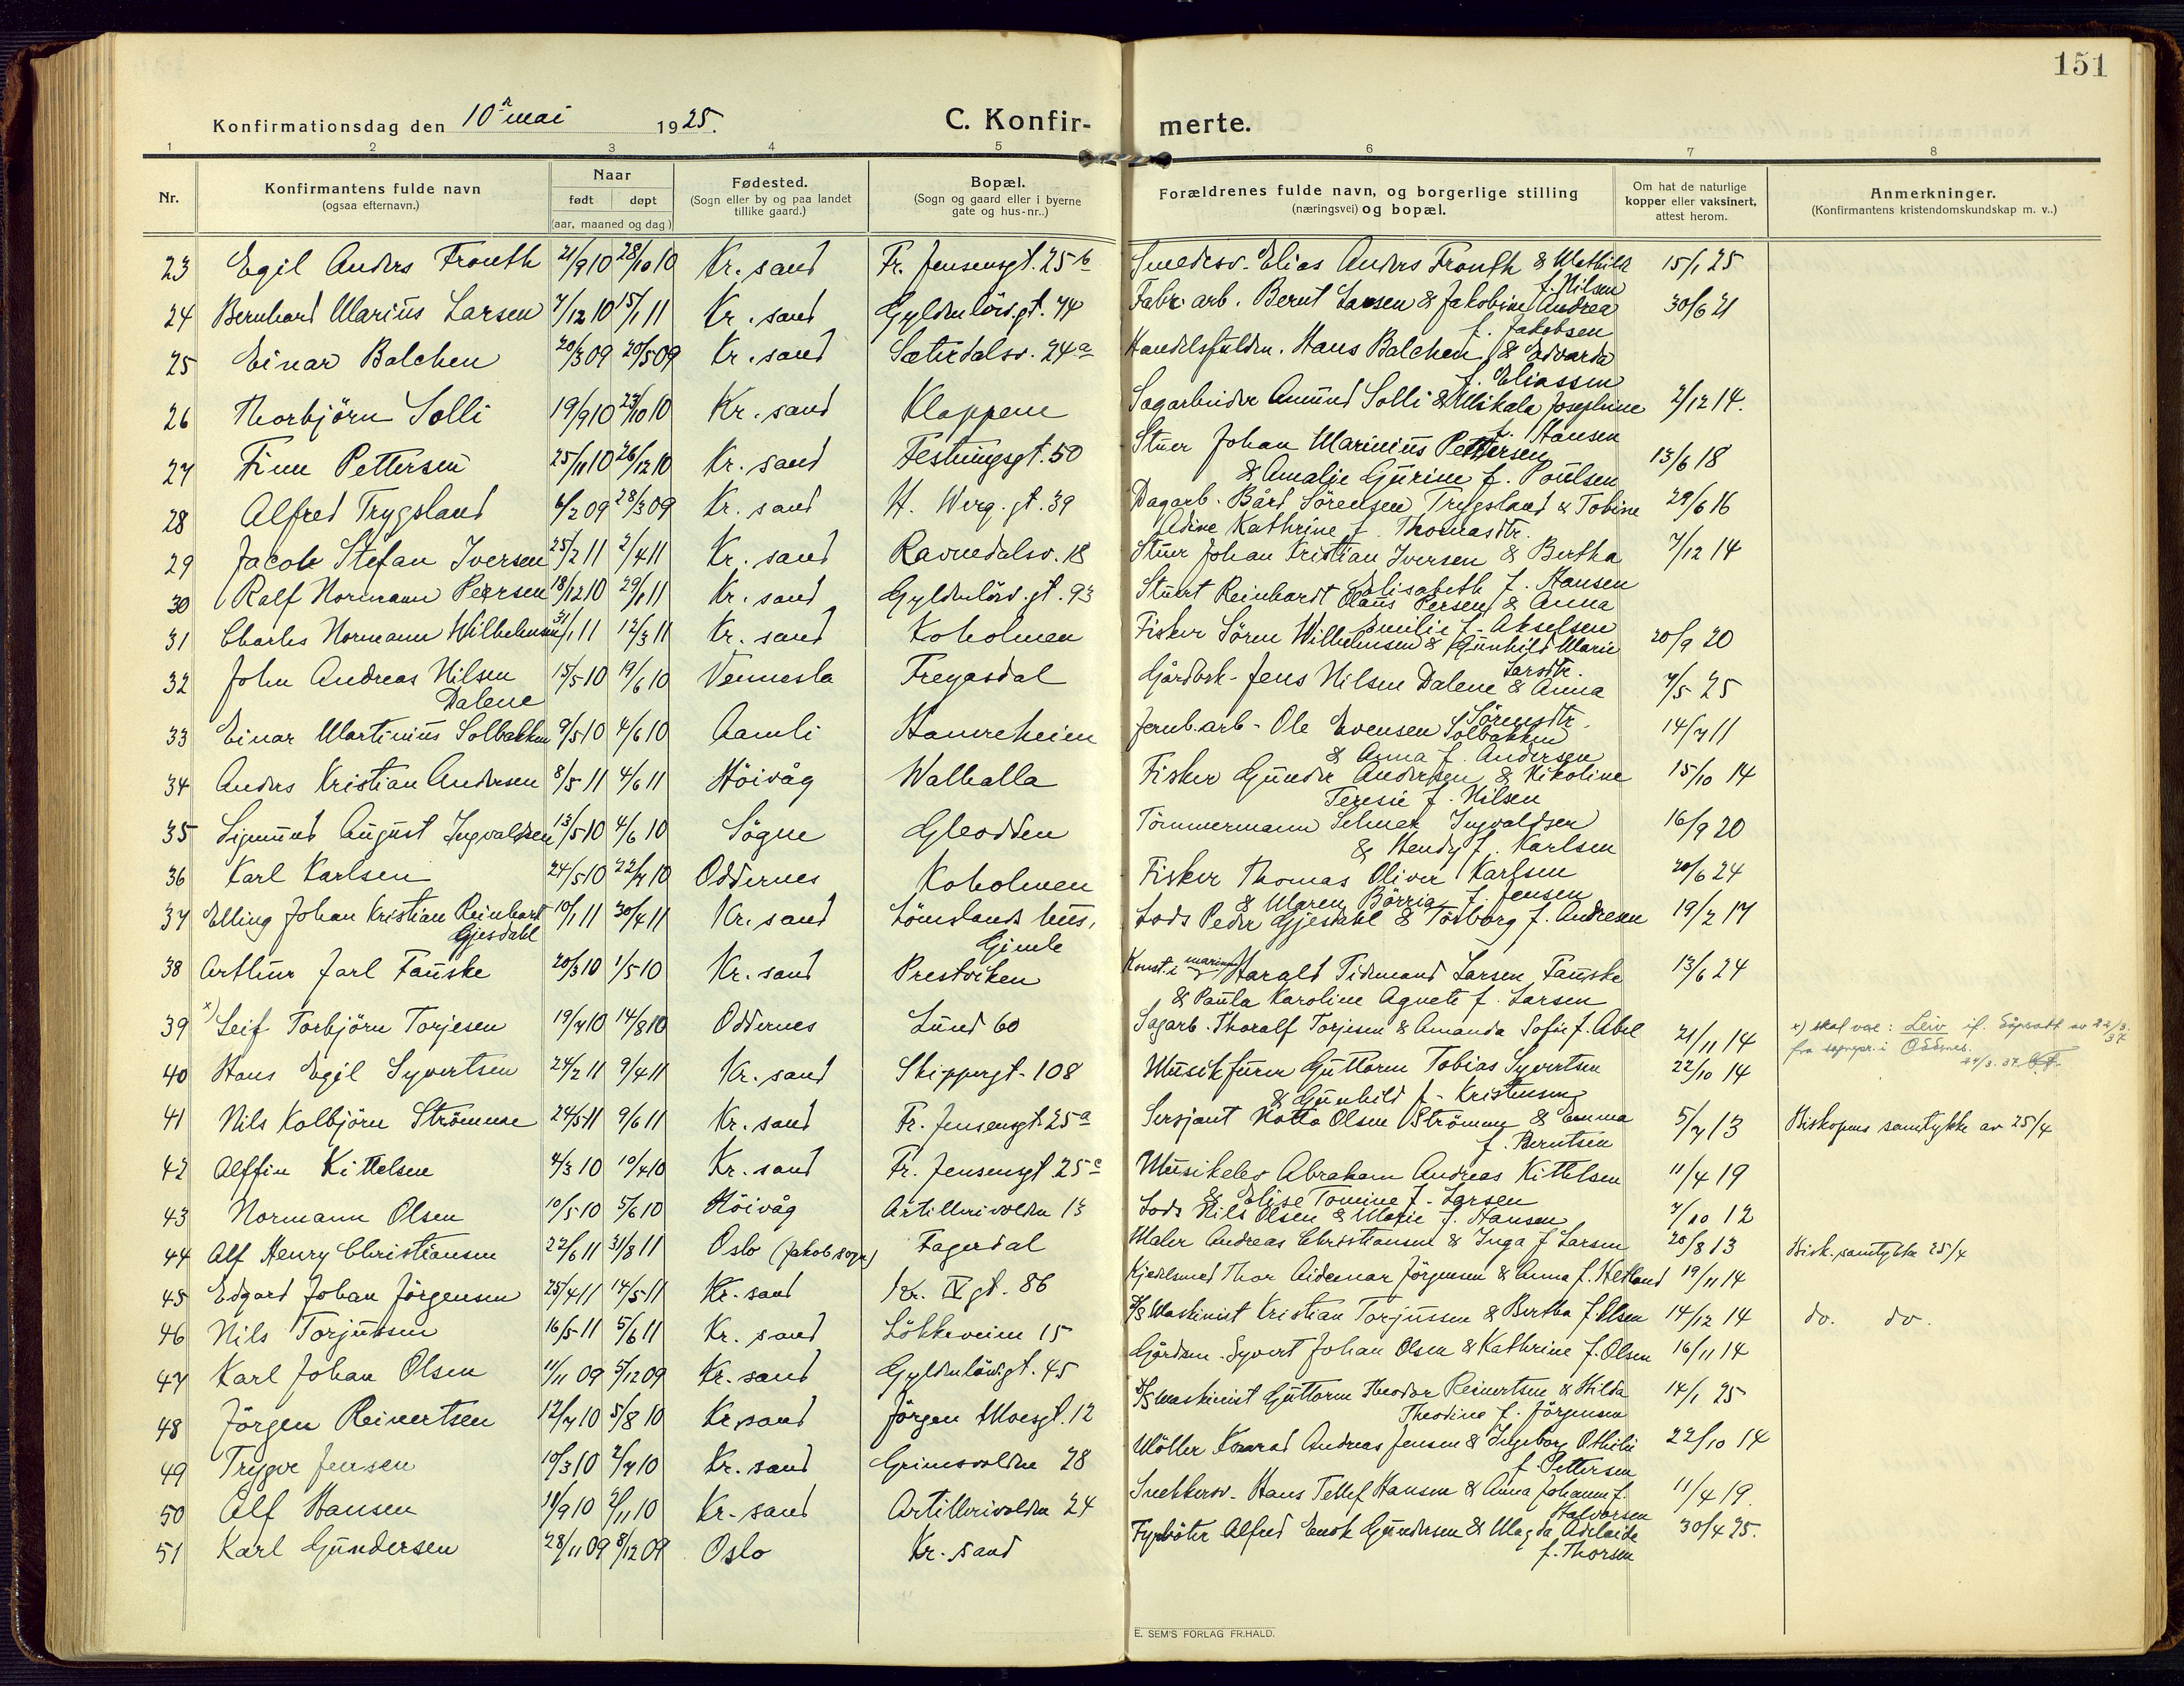 151
Konfirmationsdag den 10n mai 1925. C. Konfir- merte.
1 2 3 4 5 6 7 8
Nr. Konfirmantens fulde navn (ogsaa efternavn.) Naar født døpt (aar, maaned og dag) Fødested. (Sogn eller by og paa landet tillike gaard.) Bopæl. (Sogn og gaard eller i byerne gate og hus-nr..) Forældrenes fulde navn, og borgerlige stilling (næringsvei) og bopæl. Om hat de naturlige kopper eller vaksinert, attest herom. Anmerkninger. (Konfirmantens kristendomskundskap m. v..)
23 Egil Anders Fronth 21/9 10 28/10 10 Kr. sand Fr. Jensensgt. 25 b Smedesv. Elias Anders Fronth & Mathilde f. Nilsen 15/1 25
24 Bernhard Marius Larsen 7/12 10 15/1 11 Kr. sand Gyldenlövs.gt. 74 Fabr. arb. Bernt Larsen & Jakobine Andrea f. Jakobsen 30/6 21
25 Einar Balchen 20/3 09 20/5 09 Kr. sand Sætersdalsv. 24 a Handelsfuldm. Hans Balchen & Edvarda f. Eliassen
26 Thorbjörn Solli 19/9 10 23/10 10 Kr. sand Klappene Sagarbeider Amund Solli & Mikala Josephine f. Hansen 2/12 14.
27 Finn Pettersen 25/11 10 26/12 10 Kr. sand Festningsgt. 50 Stuer Johan Marinius Pettersen & Amalie Gurine f. Poulsen 13/6 18
28 Alfred Trygsland 6/2 09 28/3 09 Kr. sand H. Werg. gt. 39 Dagarb. Bård Sörensen Trygsland & Tobine Adine Kathrine f. Thomasdtr. 29/6 16
29 Jacob Stefan Iversen 25/2 11 2/4 11 Kr. sand Ravnedalsv. 18 Stuer Johan Kristian Iversen & Bertha Elisabeth f. Hansen 7/12 14
30 Ralf Normann Persen 18/12 10 29/1 11 Kr. sand Gyldenlövs.gt. 93 Stuert Reinhardt Claus Persen & Anna Emilie f. Akselsen
31 Charles Normann Wilhelmsen 31/1 11 12/3 11 Kr. sand Koholmen Fisker Sören Wilhelmsen & Gunhild Marie Larsdtr. 20/9 20
32 John Andreas Nilsen Dalene 15/5 10 19/6 10 Vennesla Fregasdal Gårdbrk. Jens Nilsen Dalene & Anna Sörensdtr. 7/5 25
33 Einar Martinius Solbakken 9/5 10 4/6 10 Aamli Hamreheien Jernb.arb. Ole Evensen Solbakken & Anna f. Andersen 14/7 11
34 Anders Kristian Andersen 8/5 11 4/6 11 Höivåg Walhalla Fisker Gunder Andersen & Nikoline Teresie f. Nilsen 15/10 14
35 Sigmund August Ingvaldsen 13/5 10 4/6 10 Sögne Gleodden Tömmermann Selmer Ingvaldsen & Hendy f. Karlsen 16/9 20
36 Karl Karlsen 24/5 10 22/7 10 Oddernes Koholmen Fisker Thomas Oliver Karlsen & Maren Börria f. Jensen 20/6 24
37 Elling Johan Kristian Reinhart Gjesdahl 10/1 11 30/4 11 Kr. sand Lömslands hus, Gimle Lods Peder Gjesdahl & Torborg f. Andresen 19/2 17
38 Arthur Jarl Fauske 20/3 10 1/5 10 Kr. sand Prestviken Konst. i marinen Harald Tidemand Larsen Fauske & Paula Karoline Agnete f. Larsen 13/6 24
39 x) Leif Torbjörn Torjesen 19/7 10 14/8 10 Oddernes Lund 60 Sagarb. Thoralf Torjesen & Amanda Sofie f. Abel 21/11 14 x) skal være: Leiv if. av 22/3 37 fra sognepr. i Oddernes. 24/3. 37.
40 Hans Egil Syvertsen 24/2 11 9/4 11 Kr. sand Skippergt. 108 Musikfurer Guttorm Tobias Syvertsen & Gunhild f. Kristensen 22/10 14
41 Nils Kolbjörn Strömme 24/5 11 9/6 11 Kr. sand Fr. Jensensgt. 25 a Sersjant Notto Olsen Strömme & Emma f. Berntsen 5/7 13 Biskopens samtykke av 25/4
42 Alffin Kittelsen 4/3 10 10/4 10 Kr. sand Fr. Jensensgt. 25 c Musikelev Abraham Andreas Kittelsen & Elise Tomine f. Larsen 11/4 19
43 Normann Olsen 10/5 10 5/6 10 Höivåg Artillerivolden 13 Lods Nils Olsen & Marie f. Hansen 7/10 12
44 Alf Henry Christiansen 22/6 11 31/8 11 Oslo (Jakob sogn) Fagerdal Maler Andreas Christiansen & Inga f. Larsen 20/8 13 Bisk. samtykke 25/4
45 Edgard Johan Jörgensen 25/4 11 14/5 11 Kr. sand Kr. IV gt. 86 Kjedelsmed Thor Aidemar Jörgensen & Anna f. Hetland 19/11 14
46 Nils Torjussen 16/5 11 5/6 11 Kr. sand Lökkeveien 15 D/S Maskinist Kristian Torjussen & Bertha f. Olsen 14/12 14 do. do.
47 Karl Johan Olsen 11/11 09 5/12 09 Kr. sand Gyldenlövsgt. 45 Gårdsm. Syvert Johan Olsen & Kathrine f. Olsen 16/11 14
48 Jörgen Reinertsen 12/7 10 5/8 10 Kr. sand Jörgen Moesgt. 12 D/S Maskinist Guttorm Theodor Reinertsen & Hilda Theodine f. Jörgensen 14/1 25
49 Trygve Jensen 10/3 10 2/7 10 Kr. sand Grimsvolden 28 Möller Konrad Andreas Jensen & Ingeborg Othilie f. Pettersen 22/10 14
50 Alf Hansen 11/9 10 2/11 10 Kr. sand Artillerivolden 24 Snekkersv. Hans Tellef Hansen & Anna Johanne f. Halvorsen 11/4 19.
51 Karl Gundersen 28/11 09 8/12 09 Oslo Kr. sand Fyrböter Alfred Enok Gundersen & Magda Adelaide f. Thorsen 30/4 25.
E. SEM'S FORLAG FR.HALD.